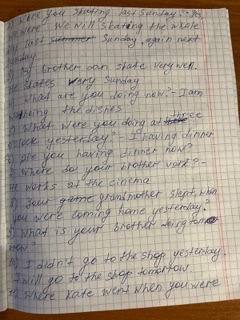 were you skating last Sunday? - Yes,
were? We will skating the whole
last Sunday again next
day.
brother can skate very well.
skates wery Sunday
What are you doing now? - I am
ing the dishes
What were you doing at three
clock yesterday? - I having dinner
6) are you having dinner now?
Where do your brother work? -
He works at the cinema
8) Your grandmother slept, when
you were coming home yesterday?
9) What is your brother doing tomo
10) I didn't go to the shop yesterday.
I will go to the shop tomorrow
Where Kate went when you were